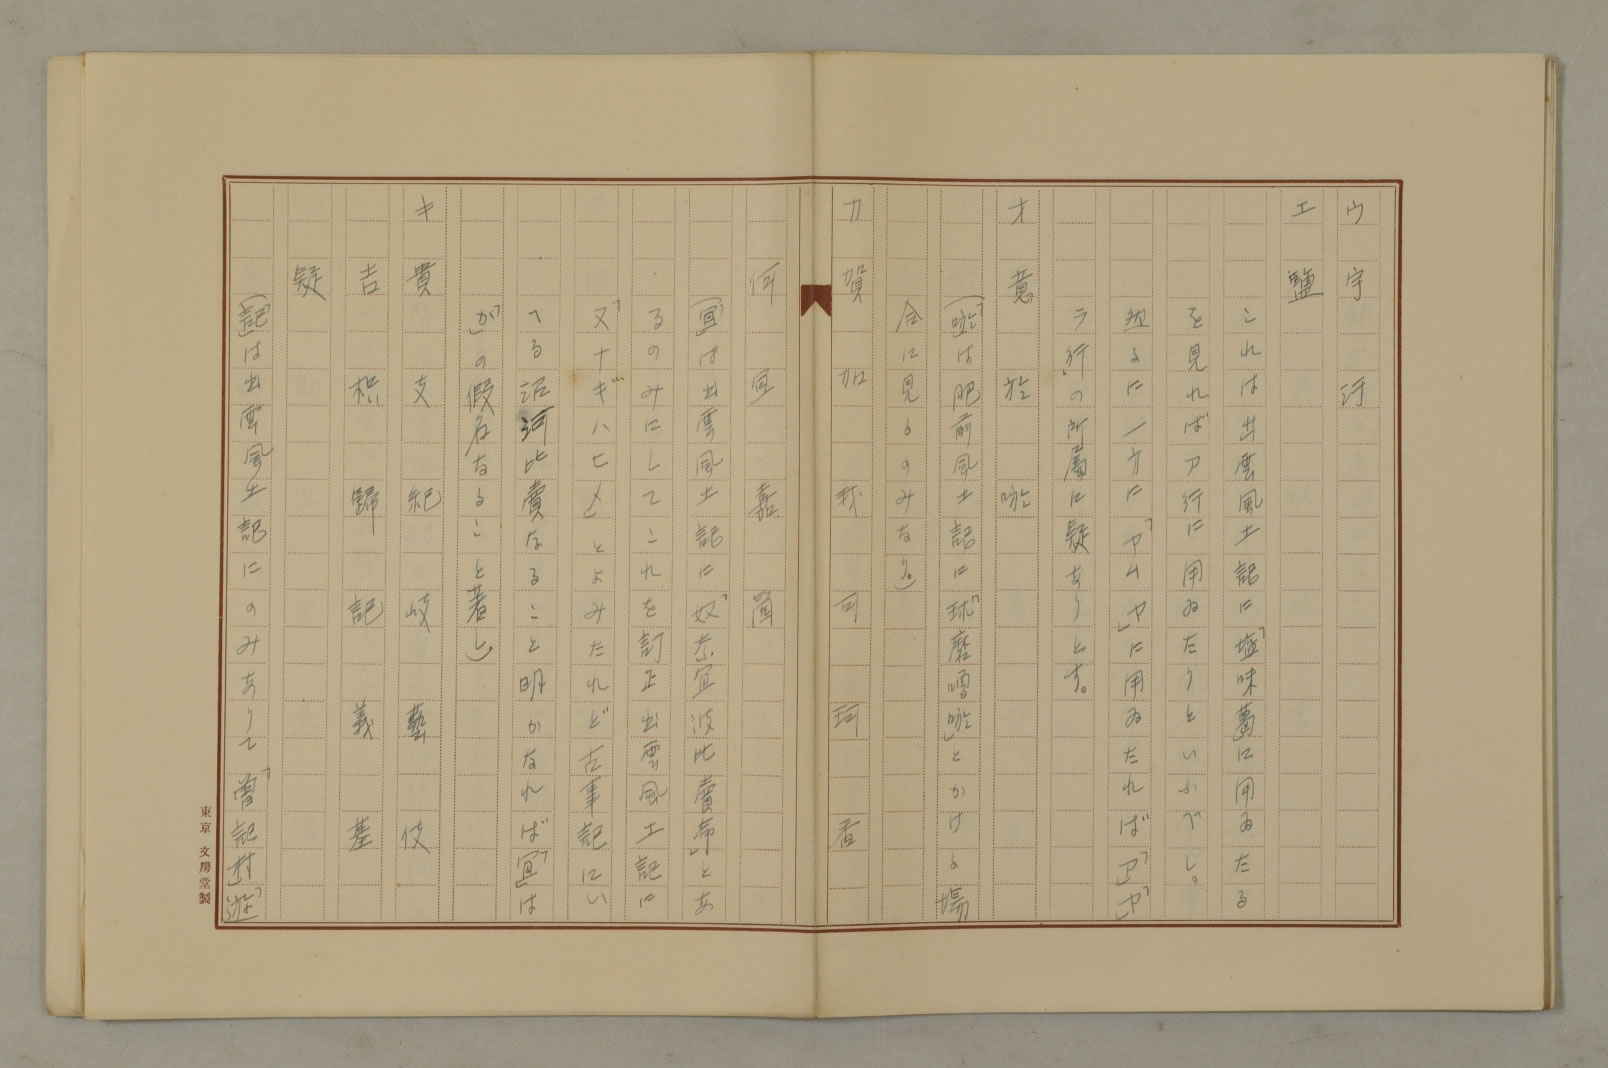 ウ 宇 汙
エ 鹽
これは出雲風土記に「塩味葛」に用ゐたる
を見ればア行に用ゐたりといふべし。
然るに一方に「ヤムヤ」に用ゐたれば「ア」「ヤ」
ラ行」の所屬に疑ありとす。
オ 意 於 唹
(「唹」は肥前風土記に「球磨囎唹」とかける場
合に見るのみなり。)
カ 賀 加 我 可 珂 香
何 宜 嘉 箇
(「宜」は出雲風土記に「奴奈宜波比賣命」とあ
るのみにしてこれを訂正出雲風土記に
「又ナギハヒメ」とよみたれど古事記にい
へる沼河比賣なること明かなれば「宜」は
「が」の假名なること著し)
キ 貴 支 紀 岐 藝 伎
吉 棋 歸 記 義 基
疑
(「記」は出雲風土記にのみありて「曽記村」「遊
東京 文房堂製